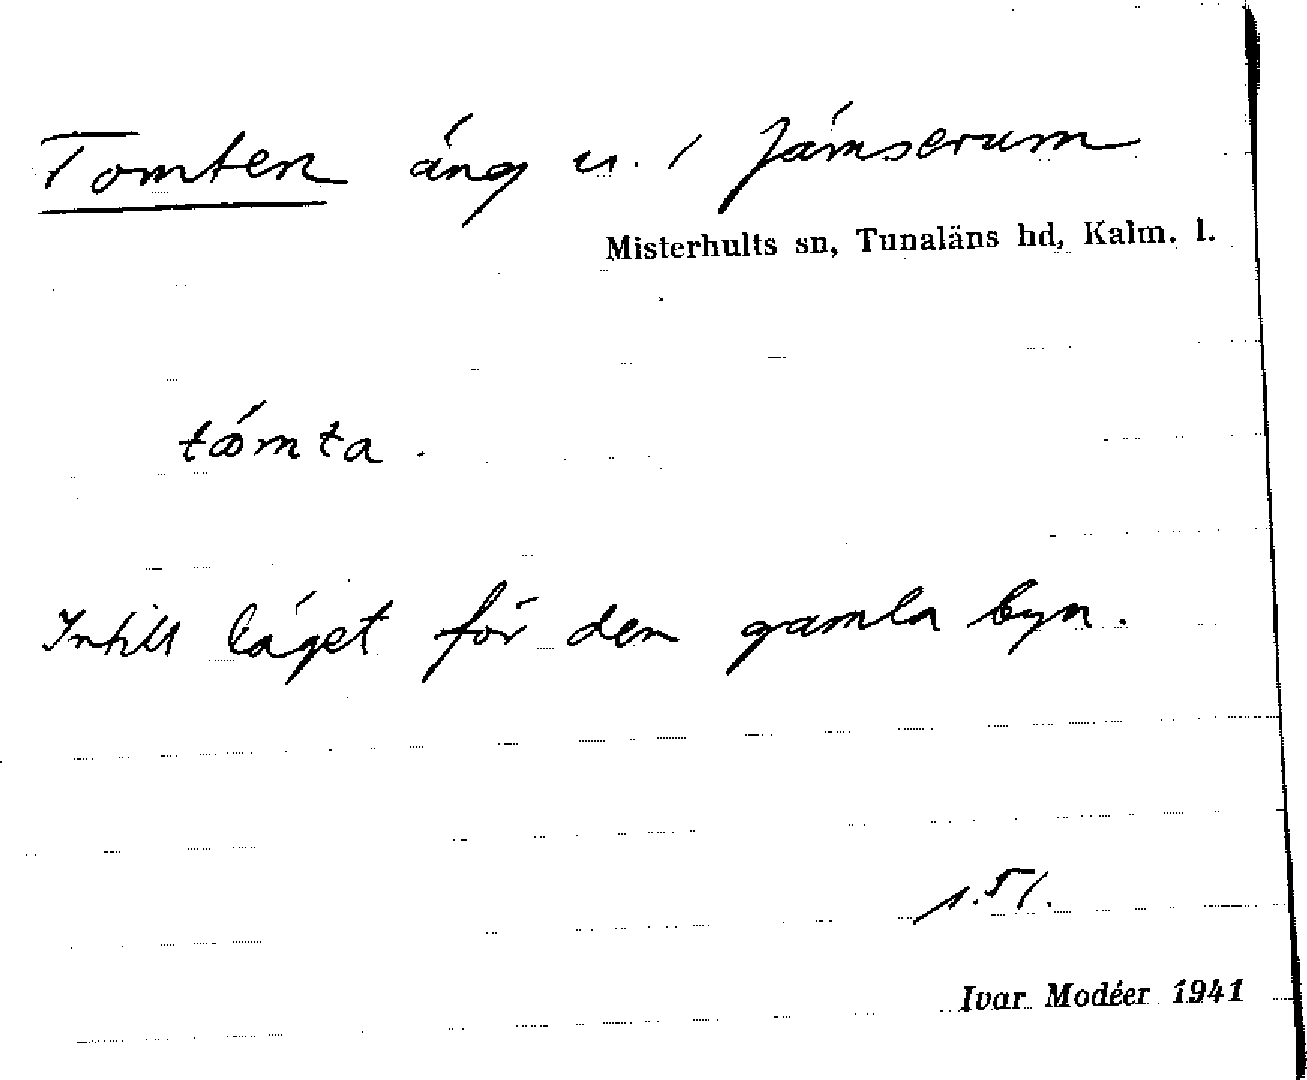 Tomten äng u. / Jämserum
Misterhults sn, Tunaläns hd, Kalm. l.
tǿmta.
Intill läget för den gamla byn.
s. 51.
Ivar Modéer 1941